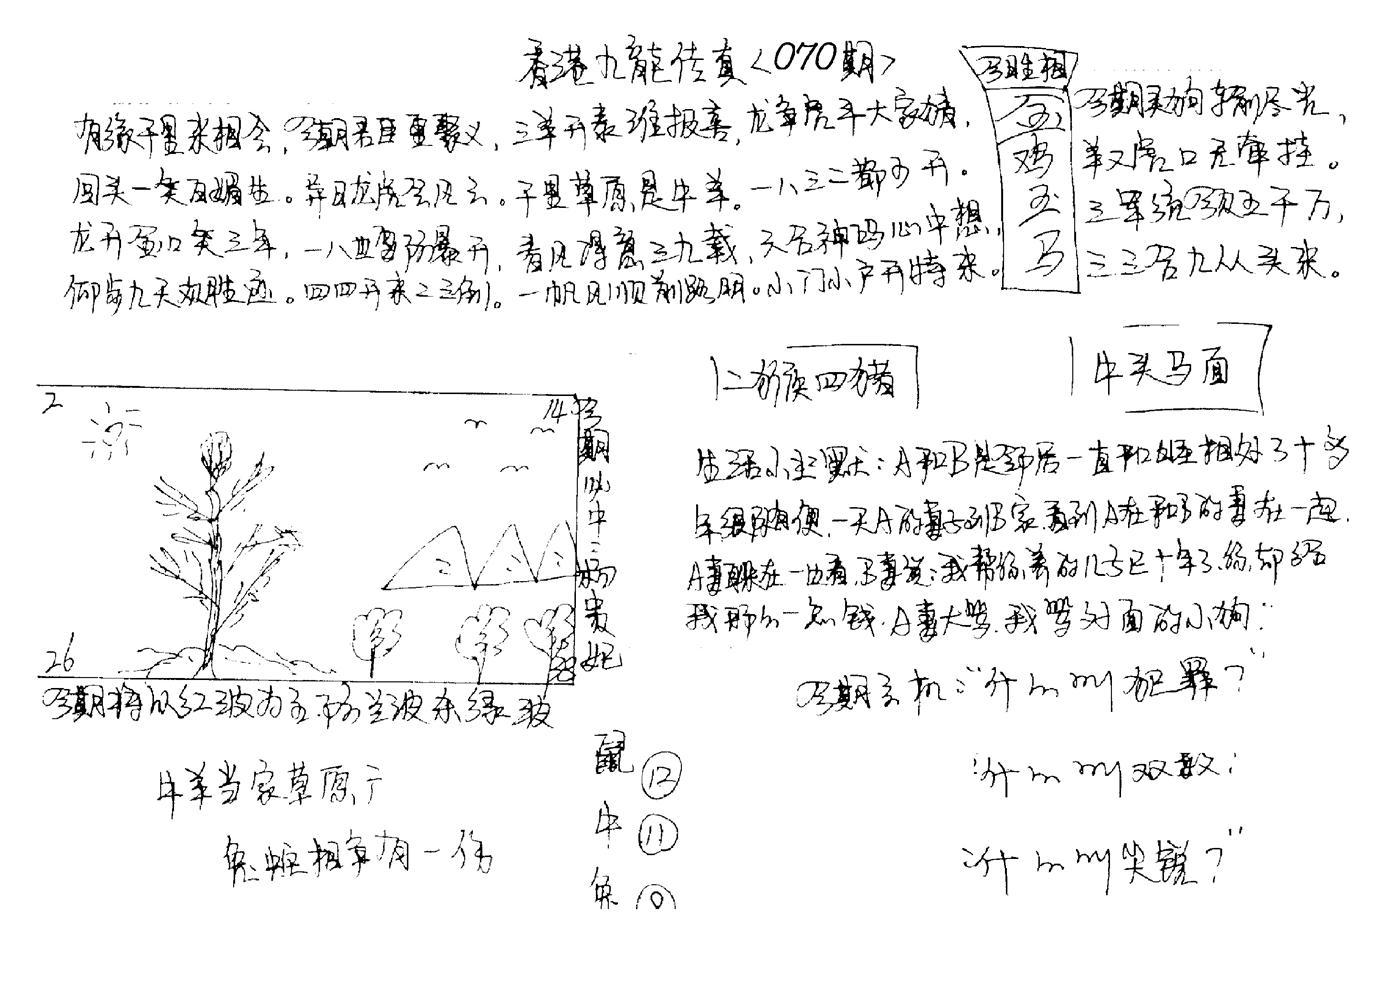 香港九龍传真〈070期〉
今期生相
金
鸡
玉
马
有缘千里来相会，今期君臣重聚义，三羊开泰谁报喜，龙争虎斗大家猜，
回头一笑百媚生。异日龙虎会风云。千里草原是牛羊。一八三二都可开。
龙开蛇口笑三年，一八四留防暴开，春风得意三九载，天合神码心中想，
仰步九天。四四开来二三倒。一帆风顺前路明。小门小户开特来。
今期灵狗转前尽光，
羊入虎口无牵挂。
三军统领五千万，
三三合九从头来。
二猴四猪
牛头马面
2
14
26
28
今期以中三场贵妃
今期特以红波为主，不为兰波杀绿波
牛羊当家草原广
兔蛇相争有一伤
鼠 12
牛 11
兔 9
生活小主题：A和B是邻居一直和睦相处了十多
年很随便，一天A的妻子到B家看到A在和B的妻在一起，
A妻躲在一边看，B妻说：我帮你养的儿子已十年了，你却给
我那么一点钱，A妻大哭，我哭对面的小狗：
今期玄机："什么犯罪？"
什么双数：
什么尖锐？"